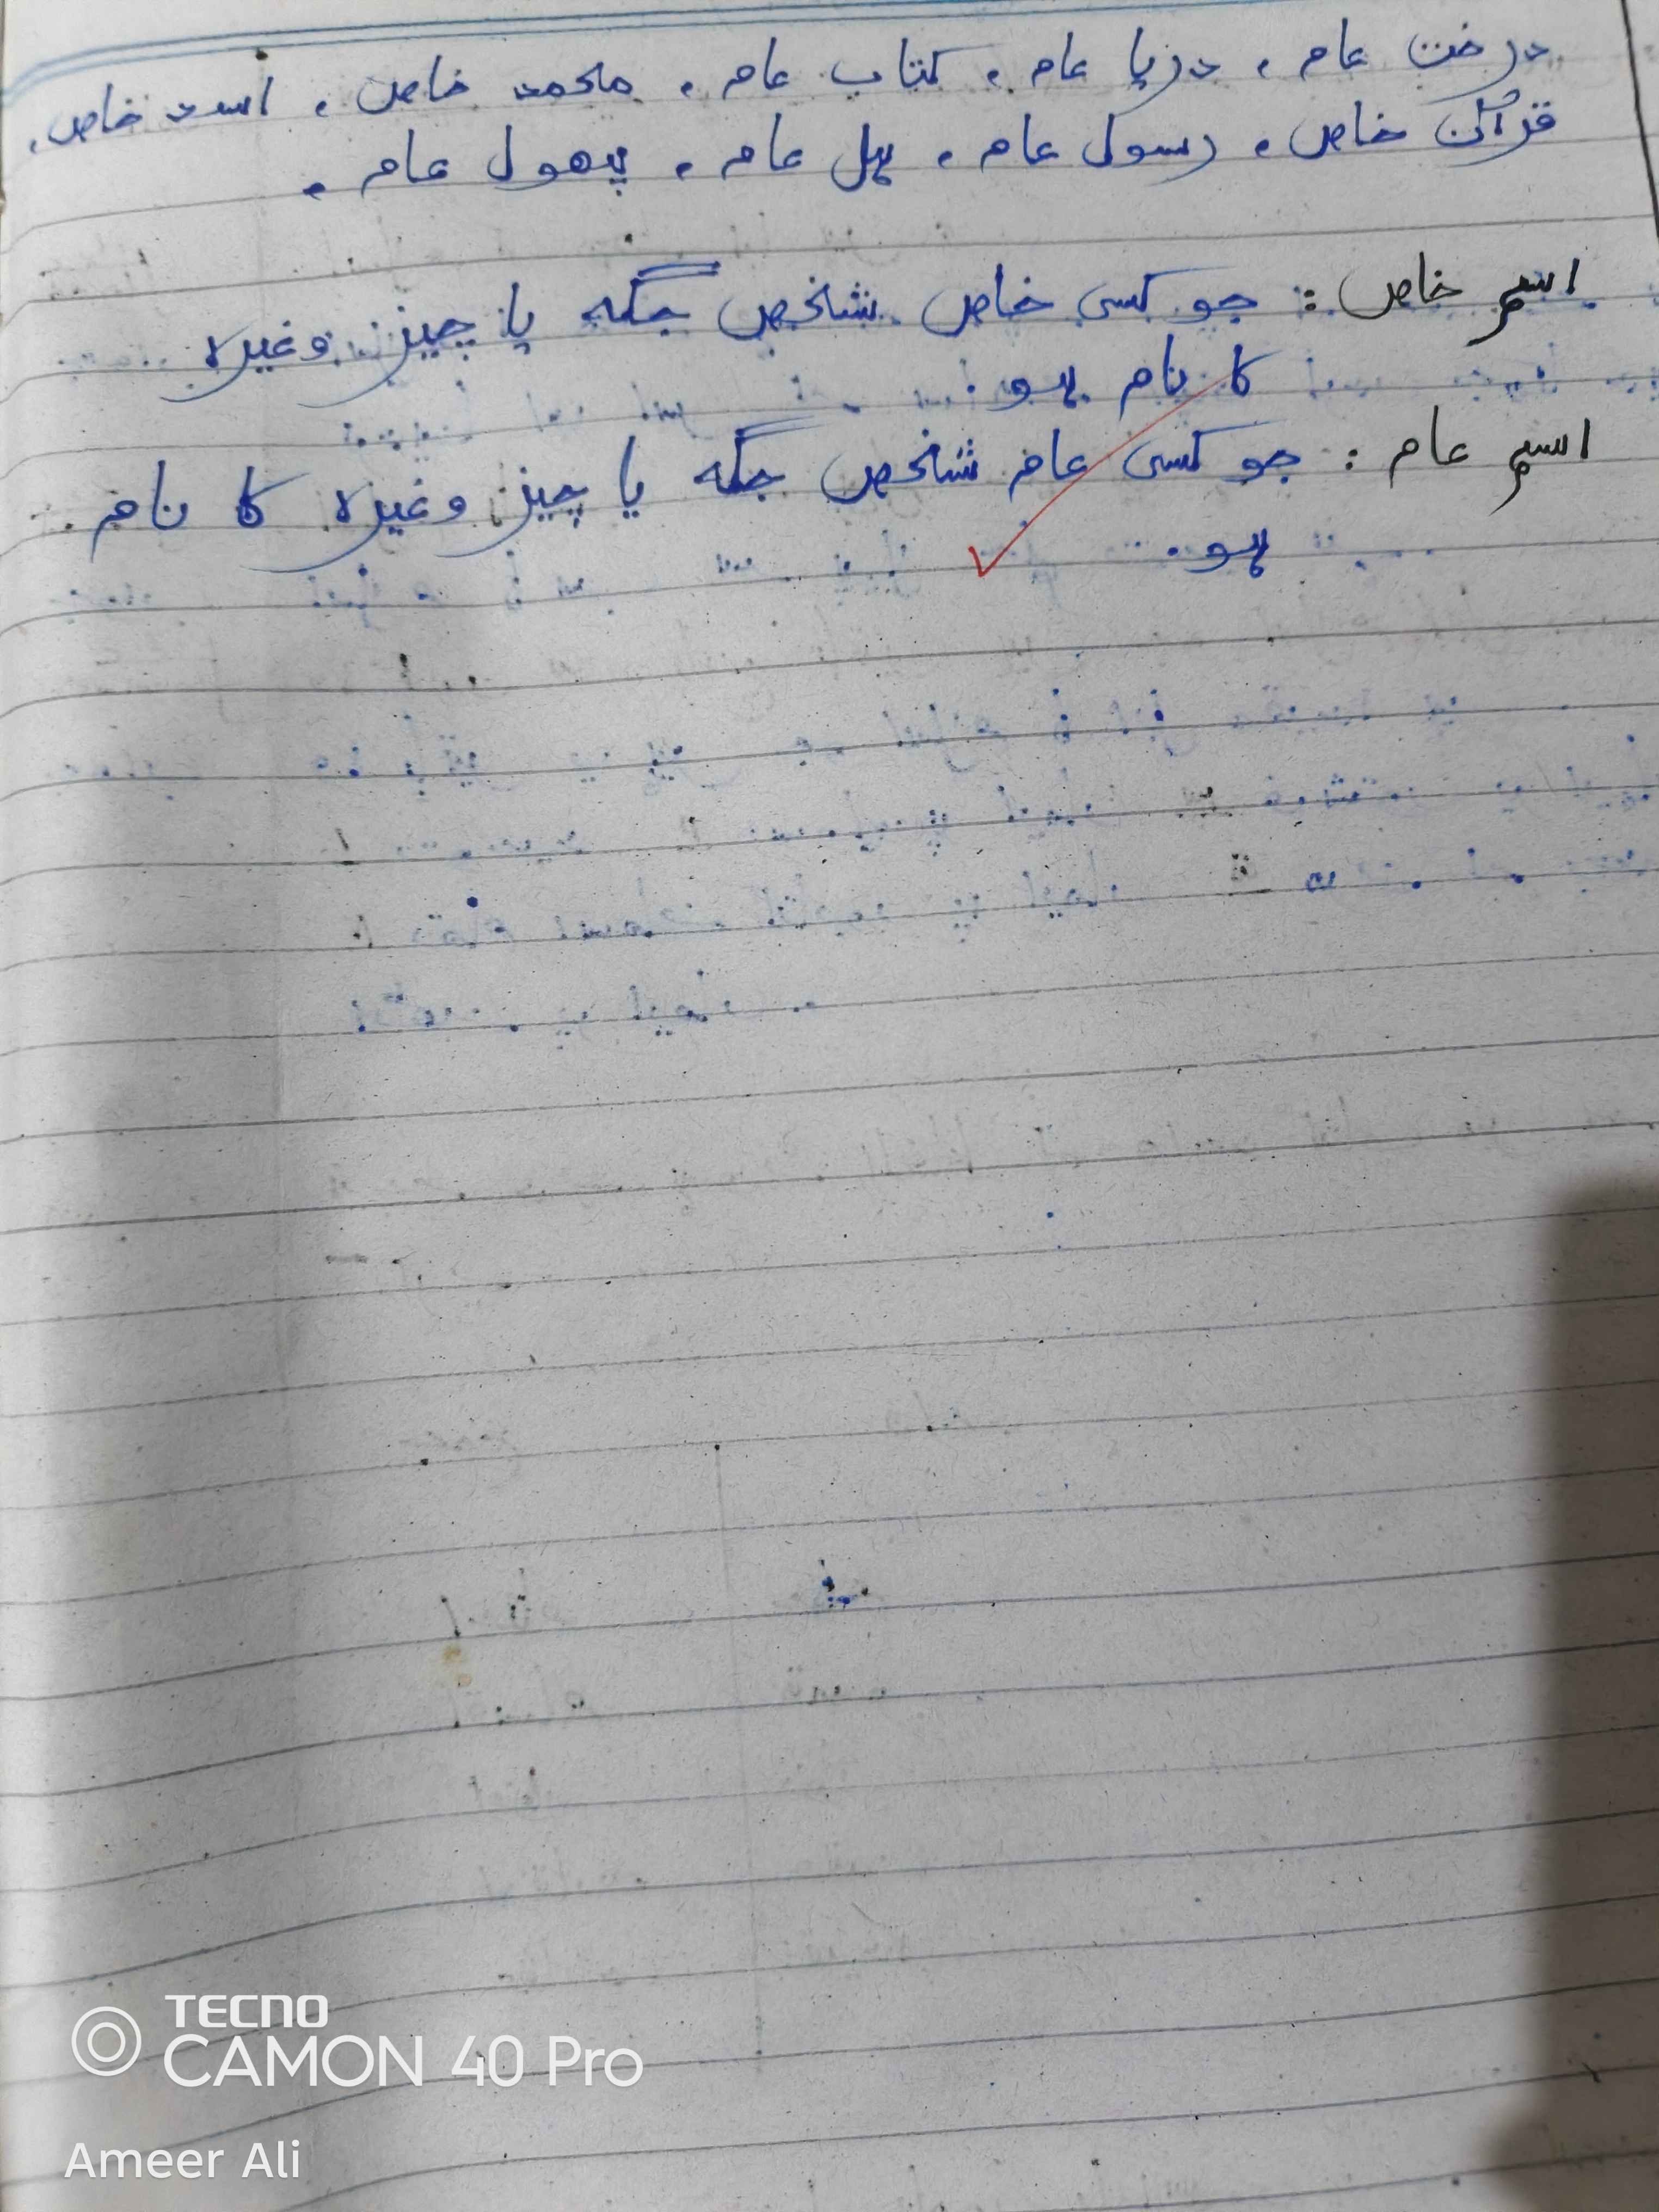 درخت عام ، دریا عام ، کتاب عام ، محمد خاص ، اسد خاص ،
قرآن خاص ، رسول عام ، پل عام ، پھول عام ،
اسم خاص : جو کسی خاص شخص جگہ یا چیز وغیرہ
کا نام ہو ۔
اسم عام : جو کسی عام شخص جگہ یا چیز وغیرہ کا نام
ہو ۔
TECNO
CAMON 40 Pro
Ameer Ali